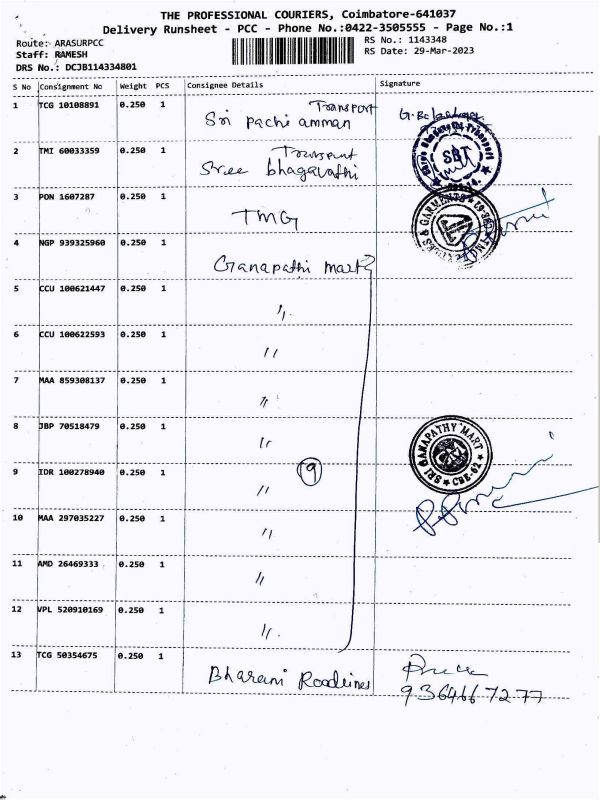 THE PROFESSIONAL COURIERS, Coimbatore-641037
Delivery Runsheet - PCC - Phone No.:0422-3505555 - Page No.:1
Route: ARASURPCC
RS No.: 1143348
Staff: RAMESH
RS Date: 29-Mar-2023
DRS No.: DCJB114334801
S No Consignment No Weight PCS Consignee Details Signature
1 TCG 10108891 0.250 1 Sri Pachi amman Transport
2 TMI 60033359 0.250 1 Sree bhagavathi Transport
SBT
3 PON 1607287 0.250 1 TMG
4 NGP 939325960 0.250 1 Ganapathi mart
5 CCU 100621447 0.250 1 "
6 CCU 100622593 0.250 1 "
7 MAA 859308137 0.250 1 "
8 JBP 70518479 0.250 1 "
SRI GANAPATHY MART
CBE-62
9 IDR 100278940 0.250 1 " 9
10 MAA 297035227 0.250 1 "
11 AMD 26469333 0.250 1 "
12 VPL 520910169 0.250 1 "
13 TCG 50354675 0.250 1 Bharani Roadlines
9364667277